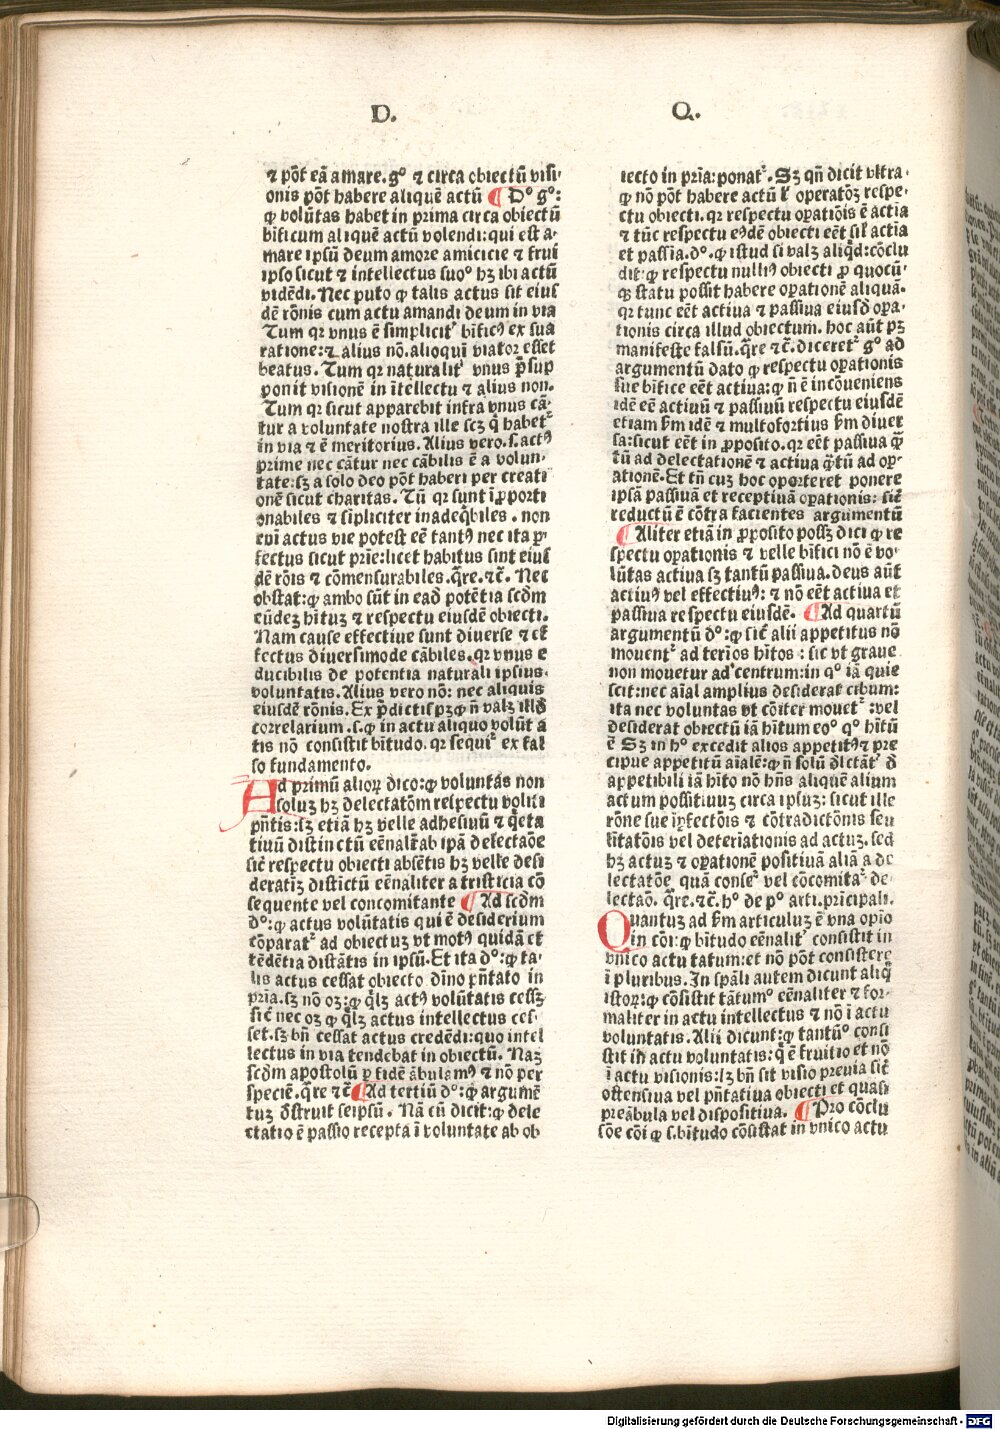 D.
Q.
⁊ põt eã amare. gº ⁊ circa obiectũ visi
onis põt habere aliquẽ actũ ¶ Dº gº:
ꝙ volũtas habet in prima circa obiectũ
bĩficum aliquẽ actũ volendi: qui est a-
mare ipsũ deum amore amicicie ⁊ frui
ipso sicut ⁊ intellectus suoº hꝫ ibi actũ
vidẽdi. Nec puto ꝙ talis actus sit eius
dẽ rõnis cum actu amandi deum in via
Tum qꝛ vnus ẽ simplicit᷑ bĩficꝰ ex sua
ratione: ⁊ alius nõ. alioqui viator esset
beatus. Tum qꝛ naturalit᷑ vnus p̃sup
ponit visionẽ in ĩtellectu ⁊ alius non.
Tum qꝛ sicut apparebit infra vnus cã-
tur a voluntate nostra ille scꝫ q̃ habet᷑
in via ⁊ ẽ meritorius. Alius vero. s. actꝰ
prime nec cãtur nec cãbilis ẽ a volun-
tate: sꝫ a solo deo põt haberi per creati
onẽ sicut charitas. Tũ qꝛ sunt ĩꝓporti
onabiles ⁊ sĩpliciter inadeq̃biles. non
eni actus vie potest eẽ tantꝰ nec ita ꝑ-
fectus sicut prĩe: licet habitus sint eius
dẽ rõis ⁊ cõmensurabiles. q̃re. ⁊c̃. Nec
obstat: ꝙ ambo sũt in ead̃ potẽtia scdm
eũdeꝫ hĩtuꝫ ⁊ respectu eiusdẽ obiecti.
Nam cause effectiue sunt diuerse ⁊ ef
fectus diuersimode cãbiles. qꝛ vnus e
ducibilis de potentia naturali ipsius
voluntatis. Alius vero nõ: nec aliquis
eiusdẽ rõnis. Ex p̃dictis pꝫ ꝙ ñ valꝫ illd̃
correlarium. s. ꝙ in actu aliquo volũt a
tis nõ consistit bĩtudo. qꝛ sequi᷑ ex fal
so fundamento.
Ad primũ alioꝝ dico: ꝙ voluntas non
soluꝫ hꝫ delectatõm respectu voliti
pñtis: sꝫ etiã hꝫ velle adhesiuũ ⁊ q̃eta
tiuũ distinctũ eẽnalr̃ ab ipã delectaõe
sic̃ respectu obiecti absẽtis hꝫ velle desi
deratiꝫ distĩctũ eẽnaliter a tristicia cõ
sequente vel concomitante ¶ Ad scdm
dº: ꝙ actus volũtatis qui ẽ desiderium
cõparat᷑ ad obiectuꝫ vt motꝰ quidã et
tẽdẽtia distãtis in ipsũ. Et ita dº: ꝙ ta-
lis actus cessat obiecto dĩno pñtato in
prĩa. sꝫ nõ oꝫ: ꝙ q̃lꝫ actꝰ volũtatis cessꝫ
sic̃ nec oꝫ ꝙ q̃lꝫ actus intellectus ces-
set. sꝫ bñ cessat actus credẽdi: quo intel
lectus in via tendebat in obiectũ. Naꝫ
scdm apostolũ ꝑ fidẽ ãbulamꝰ ⁊ nõ per
speciẽ. q̃re ⁊c̃ ¶ Ad tertiũ dº: ꝙ argumẽ
tuꝫ d̃struit seipsũ. Nã cũ dicit: ꝙ dele
ctatio ẽ passio recepta ĩ voluntate ab ob
iecto in prĩa: ponat᷑. Sꝫ qñ dicit vltra-
ꝙ nõ põt habere actũ ł operatõꝫ respe-
ctu obiecti. qꝛ respectu oꝑatiõis ẽ actĩa
⁊ tũc respectu eꝰdẽ obiecti eẽt sił actĩa
et passĩa. dº. ꝙ istud si valꝫ aliq̃d: cõclu
dit: ꝙ respectu nulliꝰ obiecti ꝓ quocũ-
qꝫ statu possit habere oꝑationẽ aliquã.
qꝛ tunc eẽt actiua ⁊ passiua eiusd̃ oꝑa-
tionis circa illud obiectum. hoc aũt pꝫ
manifeste falsũ. q̃re ⁊c̃. diceret᷑ gº ad
argumentũ dato ꝙ respectu oꝑationis
sue bĩfice eẽt actiua: ꝙ ñ ẽ incõueniens
idẽ eẽ actiuũ ⁊ passiuũ respectu eiusdẽ
etiam s̃m idẽ ⁊ multofortius s̃m diuer
sa: sicut eẽt in ꝓposito. qꝛ eẽt passiua q̃
tũ ad delectationẽ ⁊ actiua q̃tũ ad oꝑ-
ationẽ. Et tñ cuꝫ hoc oporteret ponere
ipsã passiuã et receptiuã oꝑationis: sic̃
reductũ ẽ cõtra facientes argumentũ
¶ Aliter etiã in ꝓposito possꝫ dici ꝙ re
spectu oꝑationis ⁊ velle bĩfici nõ ẽ vo-
lũtas actiua sꝫ tantũ passiua. deus aũt
actiuꝰ vel effectiuꝰ: ⁊ nõ eẽt actiua et
passiua respectu eiusdẽ. ¶ Ad quartũ
argumentũ dº: ꝙ sic̃ alii appetitus nõ
mouent᷑ ad terĩos hĩtos: sic vt graue
non mouetur ad centrum: in qº iã quie
scit: nec aĩal amplius desiderat cibum:
ita nec voluntas vt cõiter mouet᷑: vel
desiderat obiectũ iã hĩtum eoº qº hĩtũ
ẽ Sꝫ in hº excedit alios appetitꝰ ⁊ pre
cipue appetitũ aĩalẽ: ꝙ ñ solũ d̃lctãt᷑ d̃
appetibili iã hĩto nõ hñs aliquẽ alium
actum possitiuuꝫ circa ipsuꝫ: sicut ille
rõne sue ĩꝑfectõis ⁊ cõtradictõnis seu
lĩtatõis vel deteriationis ad actuꝫ. sed
hꝫ actuꝫ ⁊ oꝑationẽ positiuã aliã a de
lectatõe, quã conse᷑ vel cõcomita᷑ de-
lectaõ. q̃re. ⁊c̃. hº de pº arti. prĩcipali.
Quantuꝫ ad s̃m articuluꝫ ẽ vna opio
in cõi: ꝙ bĩtudo eẽnalit᷑ consistit in
vnico actu tatum: et nõ põt consistere
ĩ pluribus. In spãli autem dicunt aliq̃
istoꝝ: ꝙ cõsistit tãtumº eẽnaliter ⁊ for-
maliter in actu intellectus ⁊ nõ ĩ actu
voluntatis. Alii dicunt: ꝙ tantũº consi
stit iñ actu voluntatis: q̃ ẽ fruitio et nõ
ĩ actu visionis: sꝫ bñ sit visio preuia sic̃
ostensiua vel pñtatiua obiecti et quasi
preãbula vel dispositiua. ¶ Pro cõclu
sõe cõi ꝙ s. bĩtudo cõsistat in vnico actu
Digitalisierung gefördert durch die Deutsche Forschungsgemeinschaft - DFG